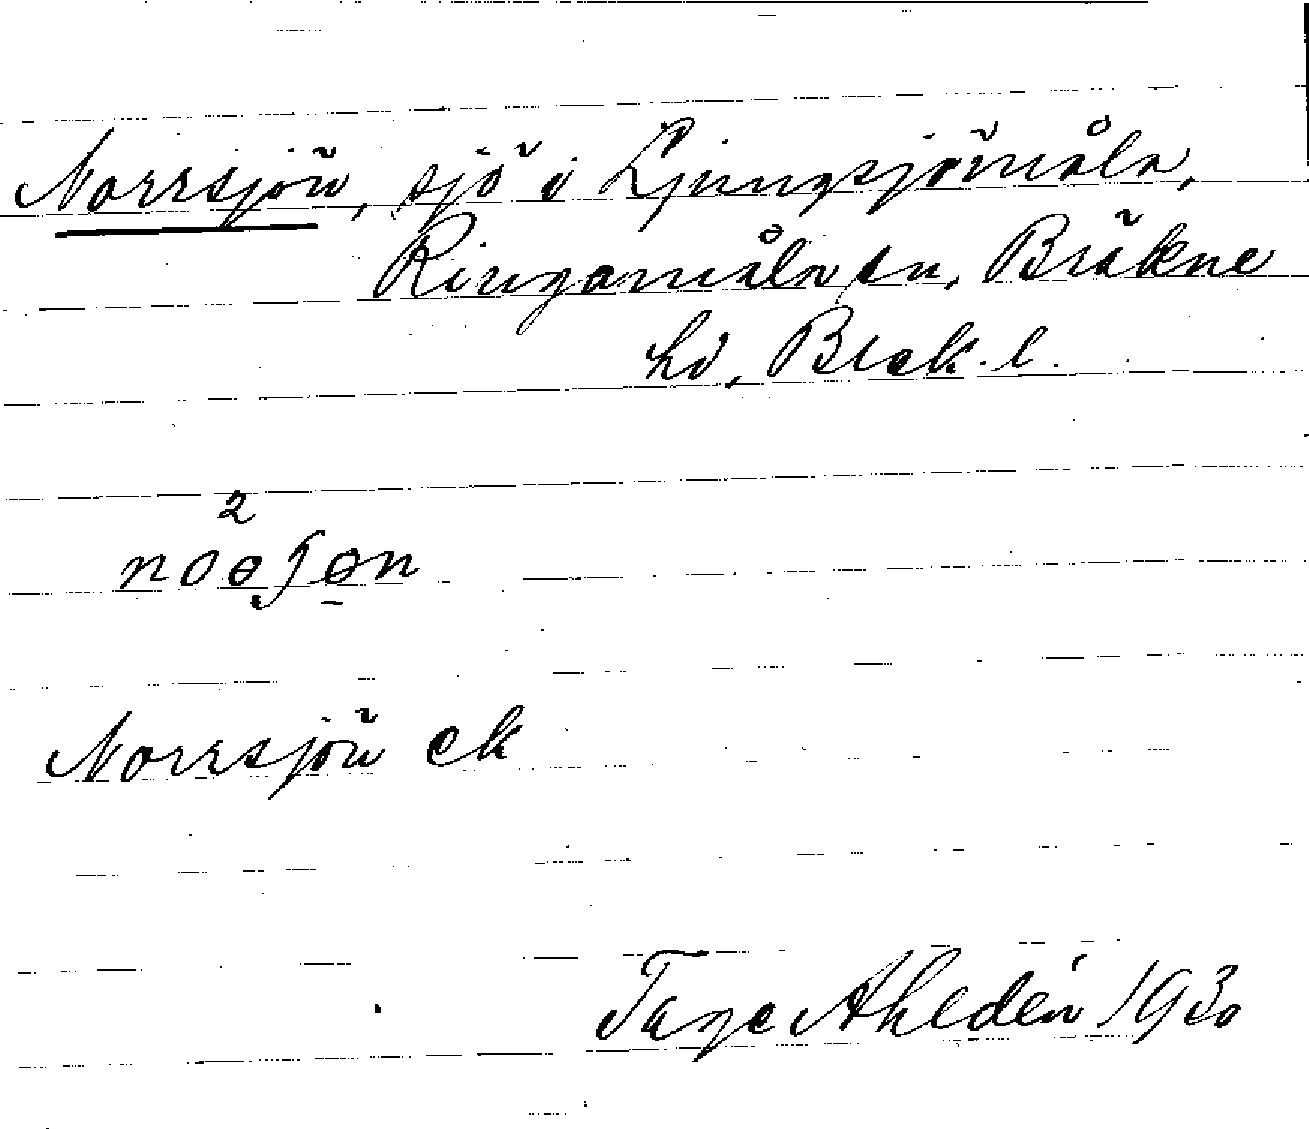 Norrsjön, sjö i Ljungsjömåla,
Ringamåla sn, Bräkne
hd, Blek. l.
Norrsjön ek
Tage Ahldén 1930